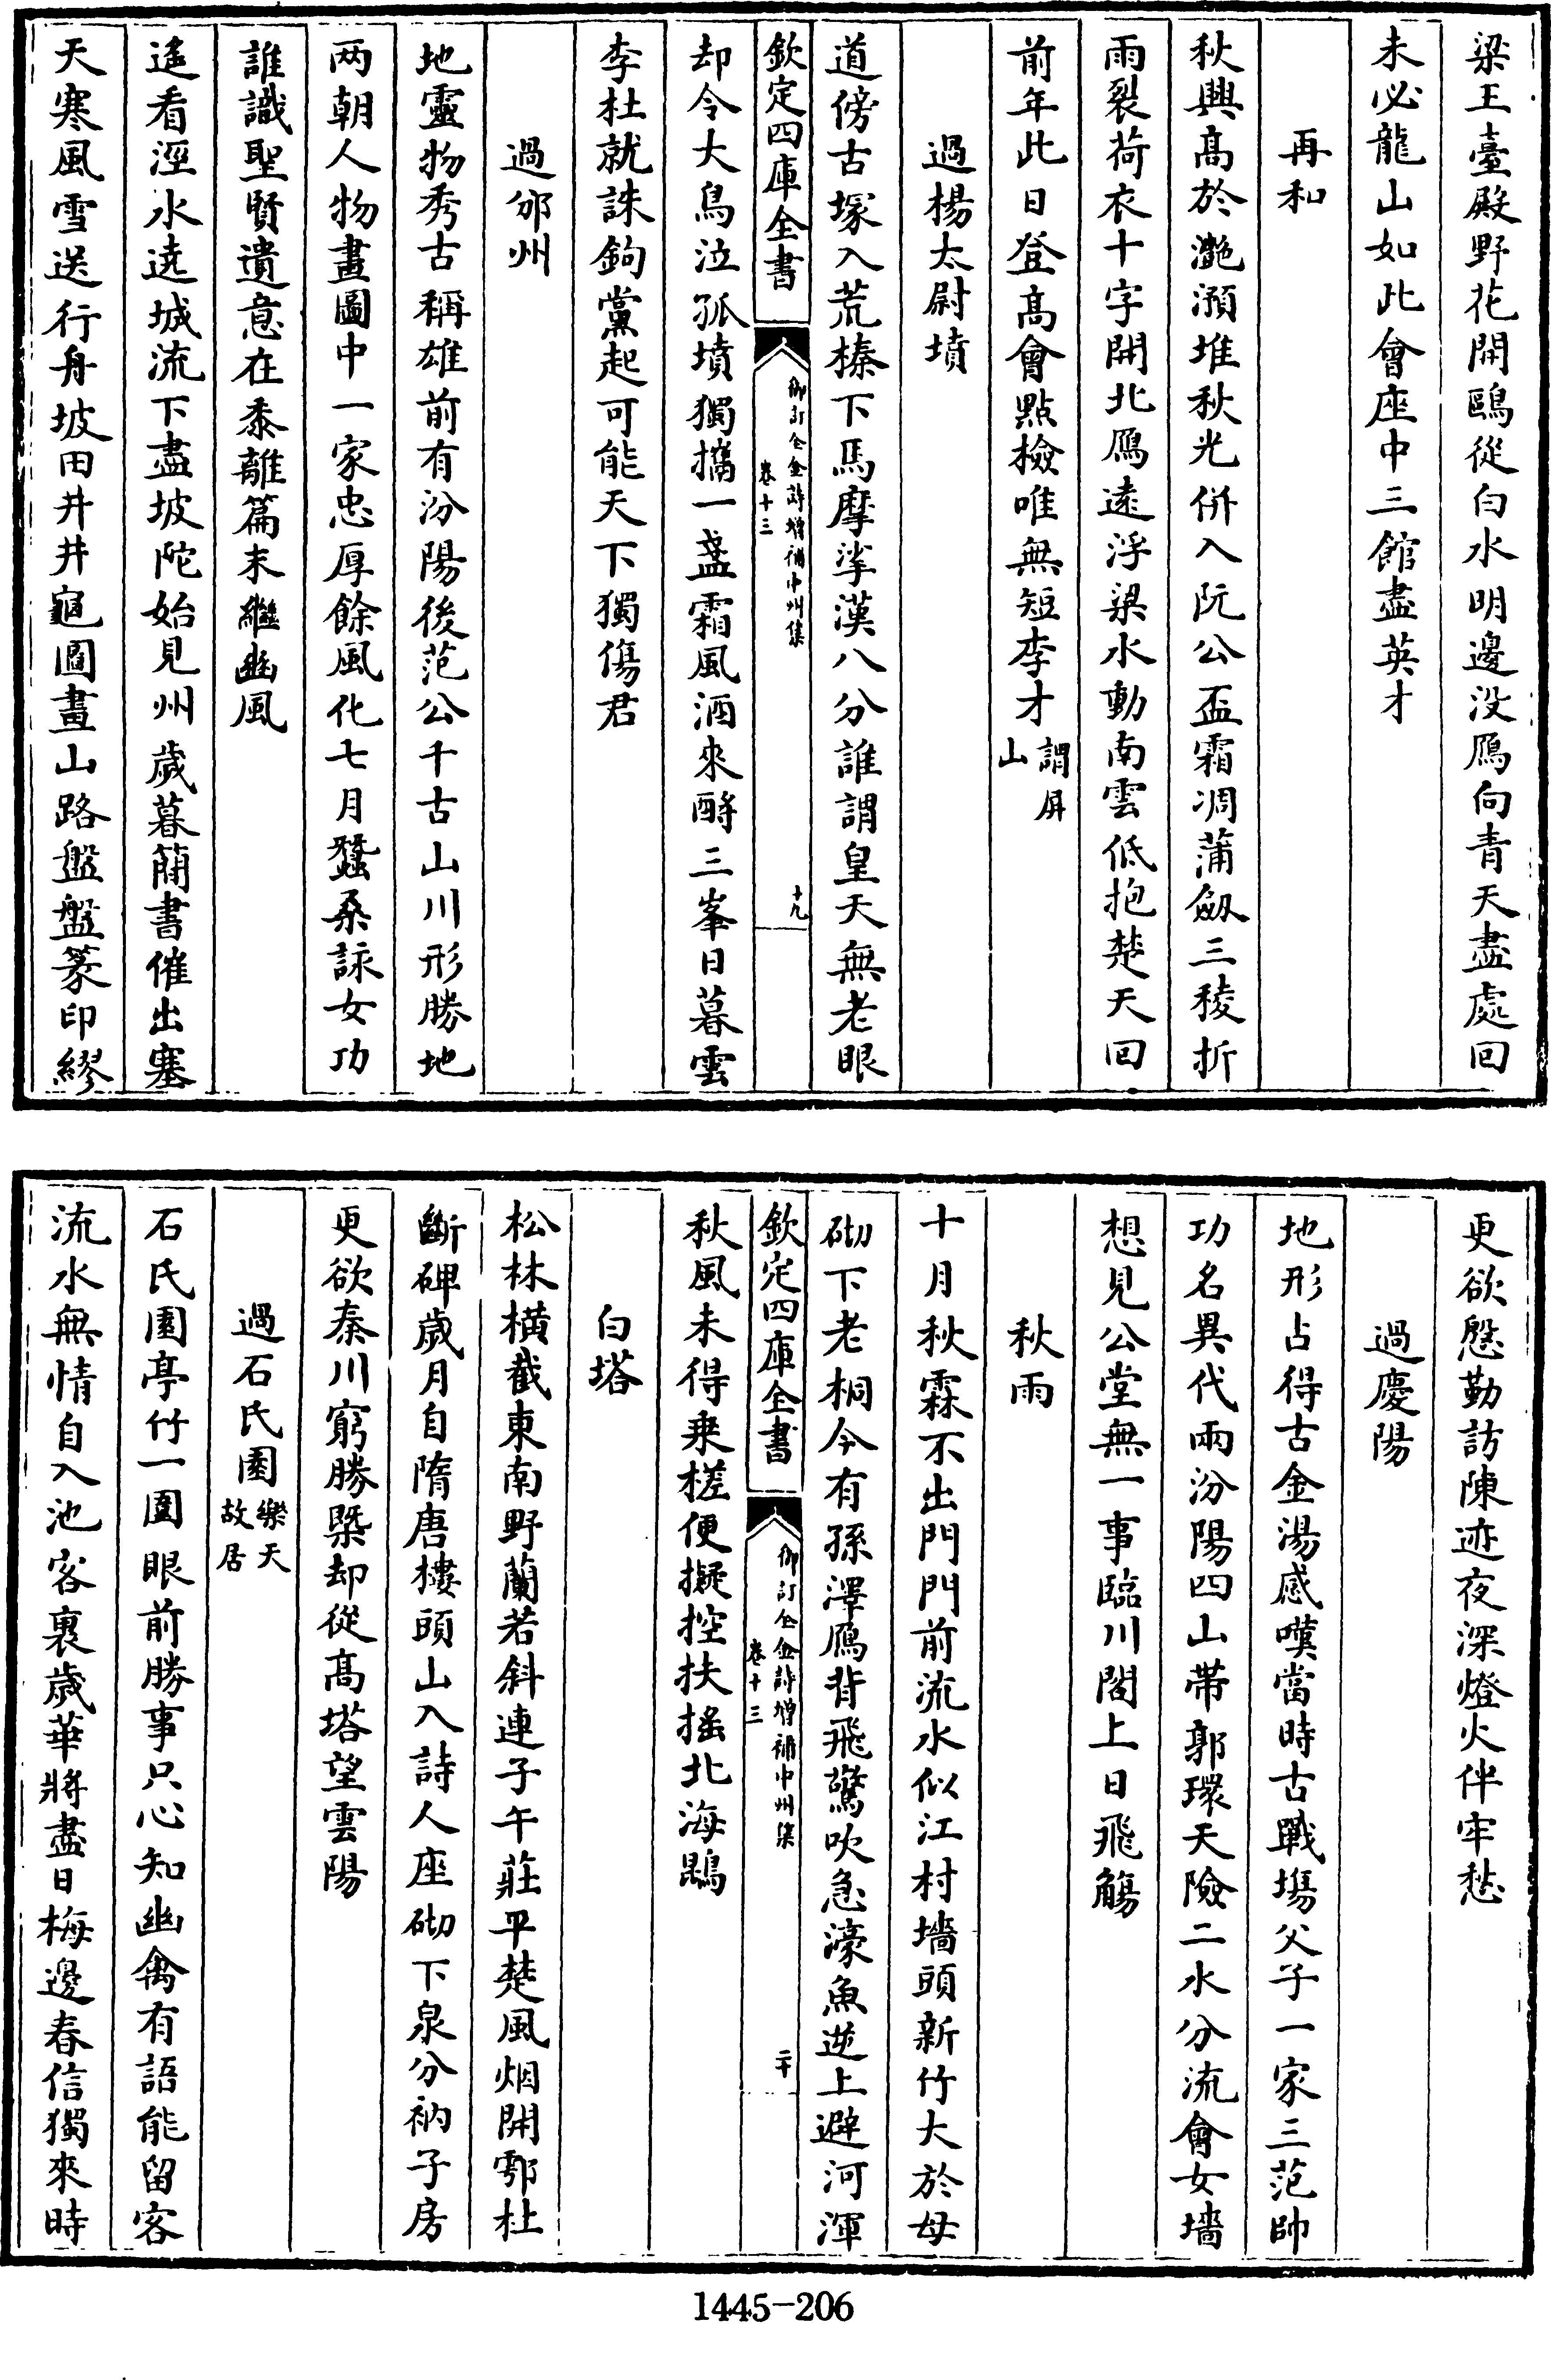 梁王臺殿野花開鷗從白水明邊没鴈向青天盡處回
未必龍山如此會座中三館盡英才
再和
秋興髙於灔澦堆秋光併入阮公盃霜凋蒲劔三稜折
雨裂荷衣十字開北鴈遠浮梁水動南雲低抱楚天回
前年此日登髙會㸃檢唯無短李才謂屏山
過楊太尉墳
道傍古塚入荒榛下馬摩挲漢八分誰謂皇天無老眼
欽定四庫全書
御訂全金詩增補中州集
卷十三
十九
却令大鳥泣孤墳獨擕一盞霜風酒來酹三峯日暮雲
李杜就誅鉤黨起可能天下獨傷君
過邠州
地靈物秀古稱雄前有汾陽後范公千古山川形勝地
两朝人物畫圖中一家忠厚餘風化七月蠶桑詠女功
誰識聖賢遺意在黍離篇末繼豳風
遙看涇水遶城流下盡坡陀始見州歲暮簡書催出塞
天寒風雪送行舟坡田井井龜圖畫山路盤盤篆印繆
更欲慇勤訪陳迹夜深燈火伴牢愁
過慶陽
地形占得古金湯感嘆當時古戰塲父子一家三范帥
功名異代兩汾陽四山帶郭環天險二水分流會女墻
想見公堂無一事臨川閣上日飛觴
秋雨
十月秋霖不出門門前流水似江村墻頭新竹大於母
砌下老桐今有孫澤鴈背飛驚吹急濠魚逆上避河渾
欽定四庫全書
御訂全金詩增補中州集
卷十三
二十
秋風未得乗槎便擬控扶揺北海鵾
白塔
松林横截東南野蘭若斜連子午莊平楚風烟開鄠杜
斷碑歲月自隋唐樓頭山入詩人座砌下泉分衲子房
更欲秦川窮勝槩却從髙塔望雲陽
過石氏園樂天故居
石氏園亭竹一圍眼前勝事只心知幽禽有語能留客
流水無情自入池客裏歲華將盡日梅邊春信獨來時
1445-206